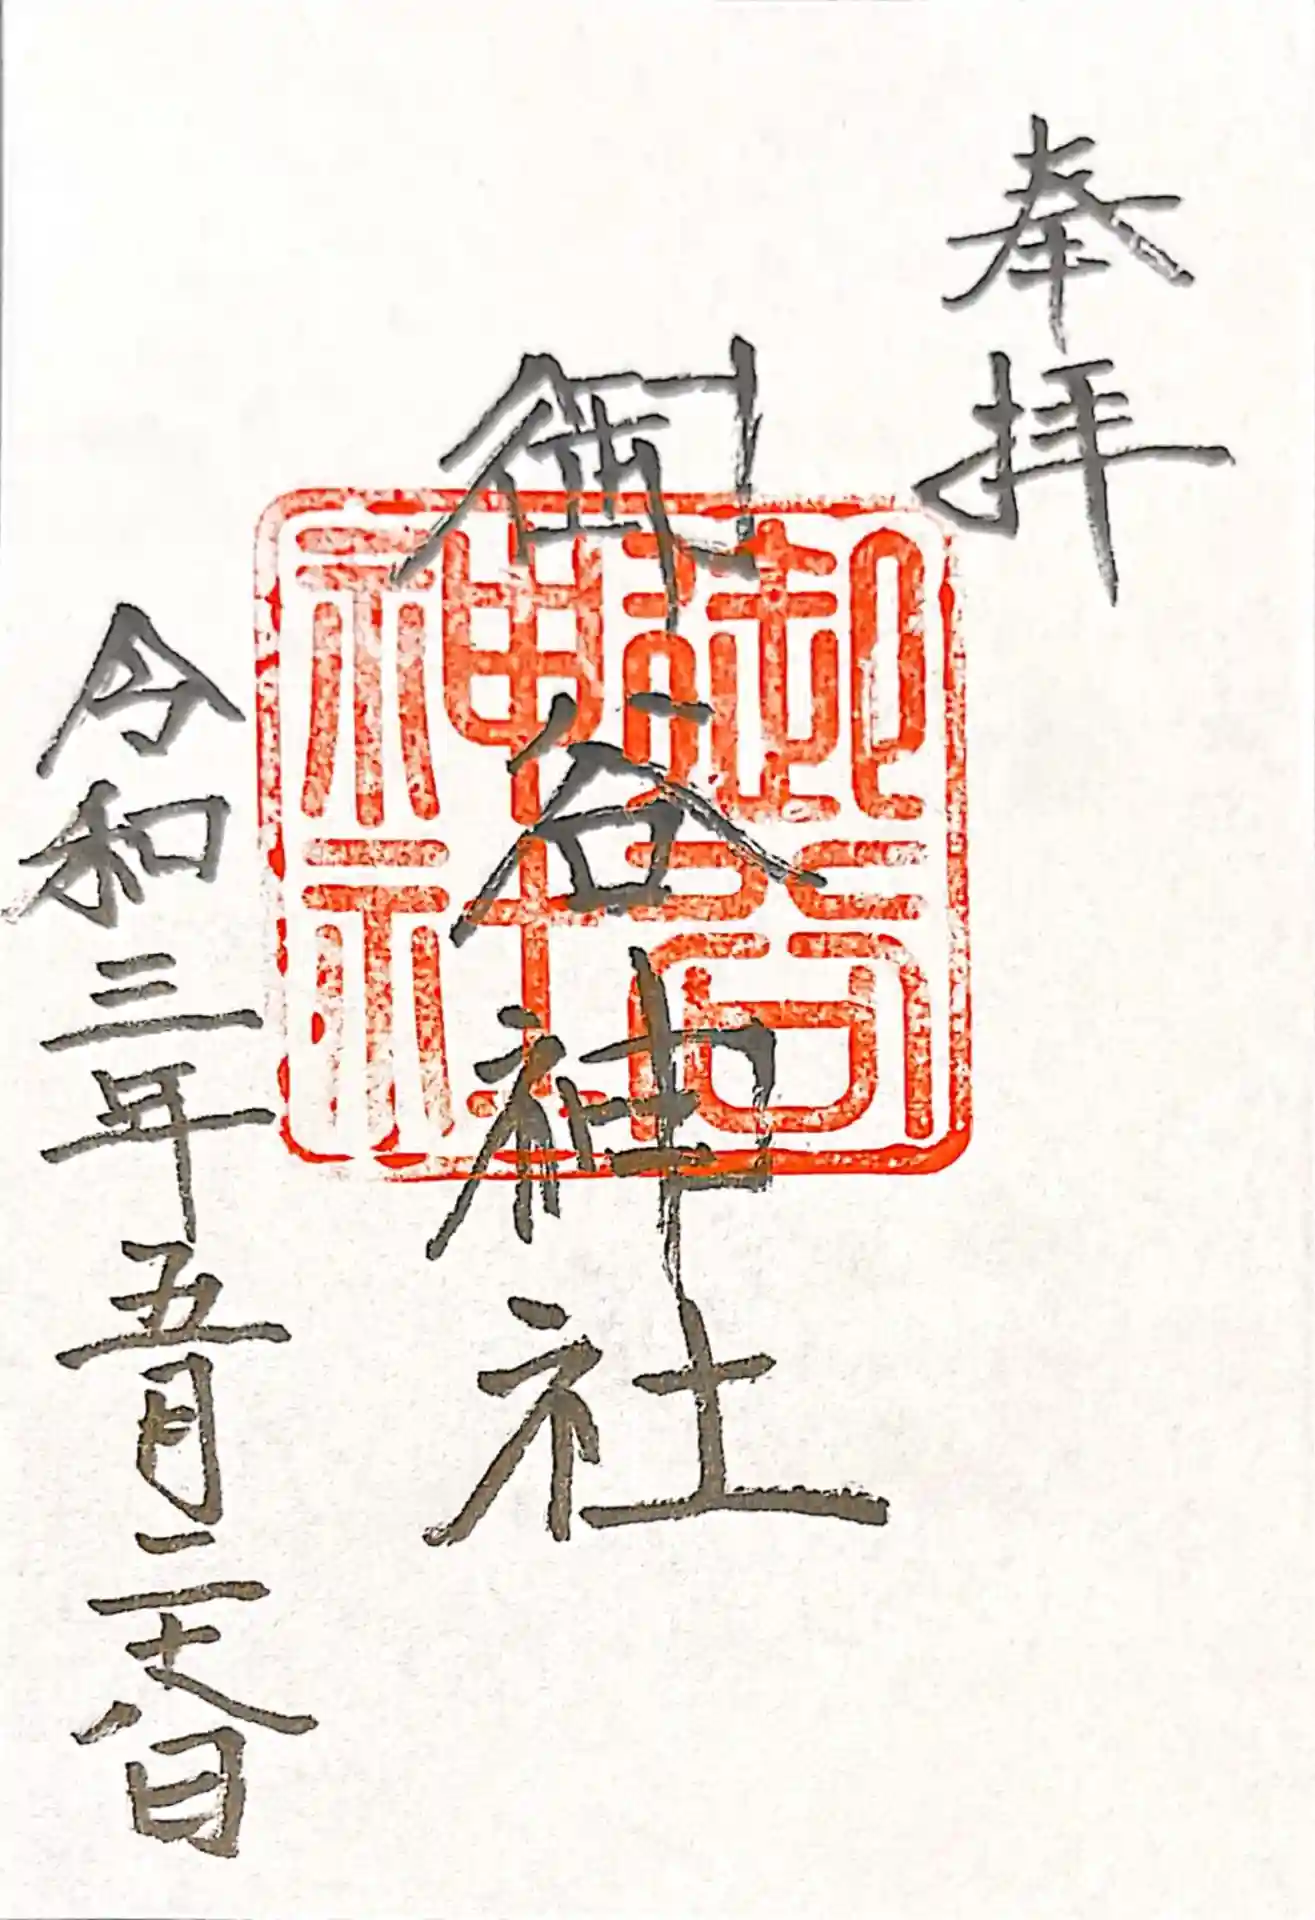 奉拝
御谷神社
令和三年五月二十八日
御谷
神社